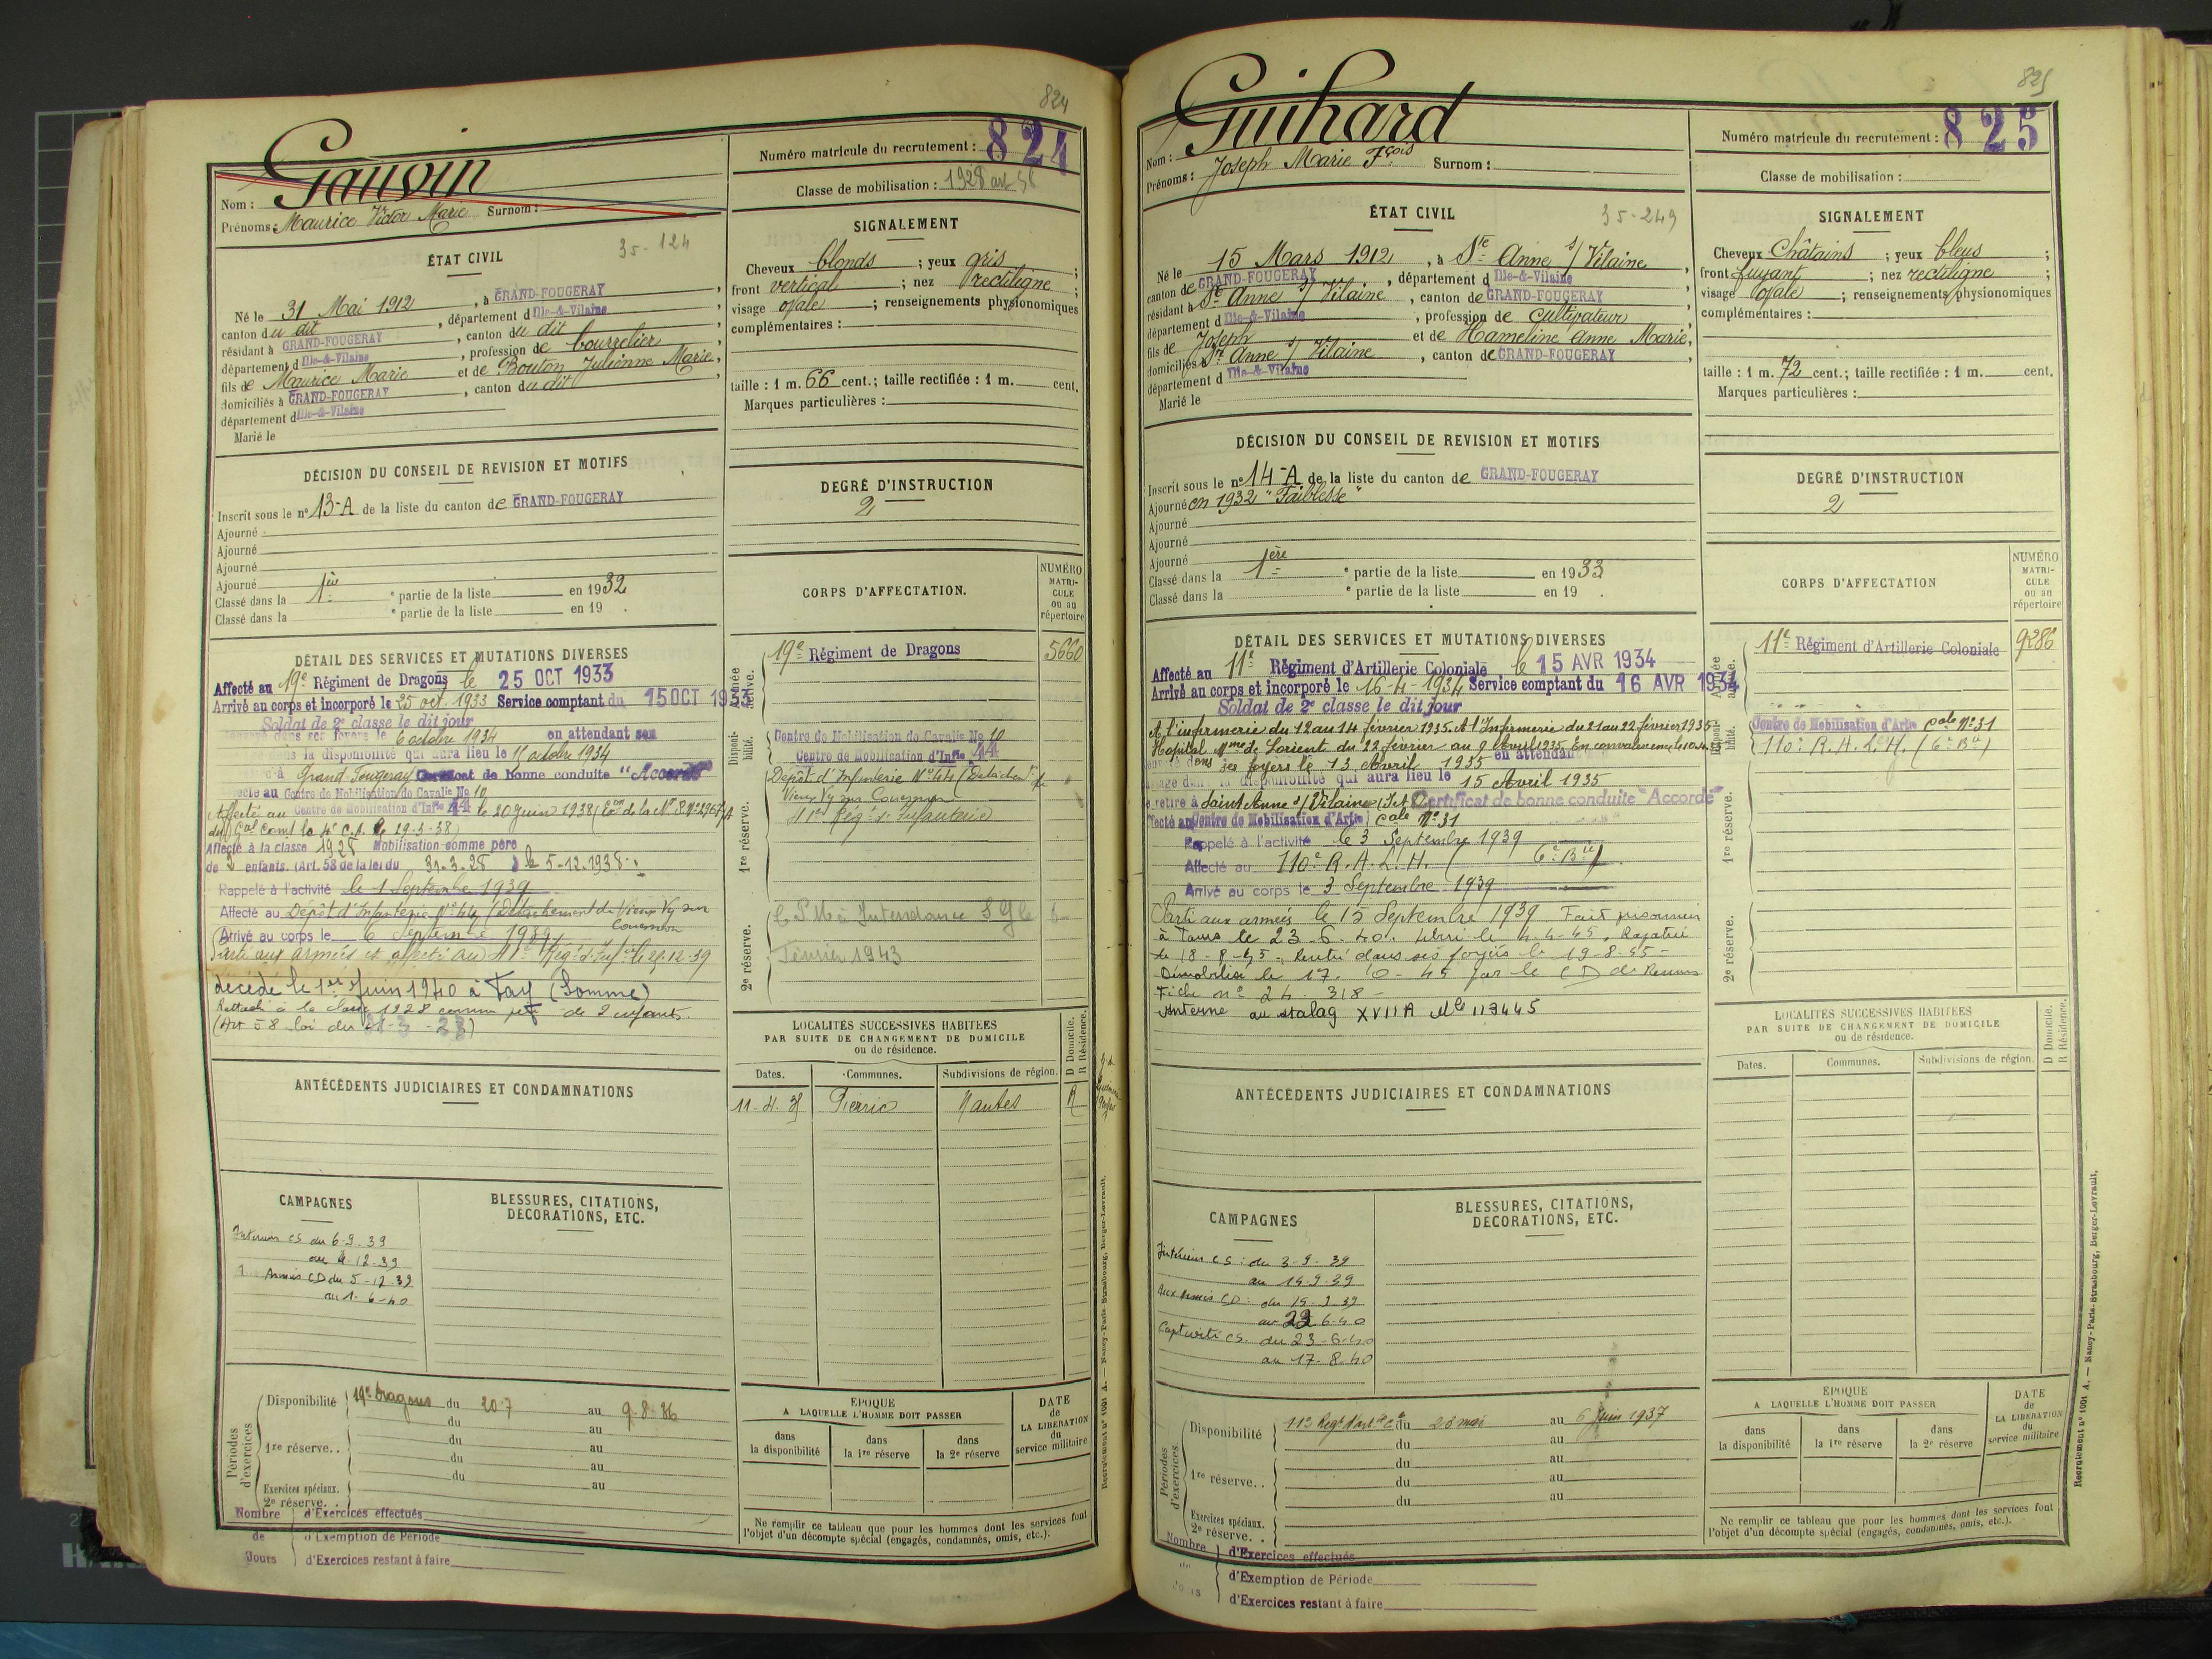 824
Gauvin
Nom :
Prénoms : Maurice Victor Marie Surnom :
Numéro matricule du recrutement : 824
Classe de mobilisation : 1928 art 58
ÉTAT CIVIL
35-124
Né le 31 Mai 1912, à GRAND-FOUGERAY,
canton du dit, département d Ille-&-Vilaine
résidant à GRAND-FOUGERAY, canton du dit
département d Ille-&-Vilaine, profession de bourrelier
fils de Maurice Marie et de Bouton Julienne Marie,
domiciliés à GRAND-FOUGERAY, canton du dit
département d Ille-&-Vilaine
Marié le
SIGNALEMENT
Cheveux blonds ; yeux gris ;
front vertical ; nez rectiligne ;
visage ovale ; renseignements physionomiques
complémentaires :
taille : 1 m. 66 cent.; taille rectifiée : 1 m. cent.
Marques particulières :
DÉCISION DU CONSEIL DE REVISION ET MOTIFS
Inscrit sous le nº 13-A de la liste du canton de GRAND-FOUGERAY
Ajourné
Ajourné
Ajourné
Ajourné
Classé dans la 1ère e partie de la liste en 1932
Classé dans la e partie de la liste en 19 .
DEGRÉ D'INSTRUCTION
2
CORPS D'AFFECTATION.
NUMÉRO MATRI-CULE ou au répertoire
Armée active.
19e Régiment de Dragons 5660
Disponi-bilité.
Centre de Mobilisation de Cavalie No 10
Centre de Mobilisation d'Infie 44
1re réserve.
Dépôt d'Infanterie Nº 44 (Détachent de
Vieux Vy sur Couesnon
41e Régt d'Infanterie
2e réserve.
Février 1943
DÉTAIL DES SERVICES ET MUTATIONS DIVERSES
Affecté au 19e Régiment de Dragons le 25 OCT 1933
Arrivé au corps et incorporé le 25 oct. 1933 Service comptant du 15 OCT 1933
Soldat de 2e classe le dit jour
dans ses foyers le 6 octobre 1934 en attendant son
dans la disponibilité qui aura lieu le 15 octobre 1934
à Grand Fougeray Certificat de bonne conduite "Accordé"
Affecté au Centre de Mobilisation de Cavalie No 10
Affecté au Centre de Mobilisation d'Infie 44 le 20 Juin 1938
Affecté à la classe 1928 Mobilisation comme père
de 2 enfants. (Art. 58 de la loi du 31.3.28) le 5-12.1938
Rappelé à l'activité le 1 Septembre 1939
Affecté au Dépôt d'Infanterie Nº 44 (Détachement de Vieux Vy sur
Couesnon
Arrivé au corps le 6 Septembre 1939
Parti aux armées et affecté au 41e Régt d'Infie le 25.12.39
décédé le 1er Juin 1940 à Fay (Somme)
Rattaché à la classe 1928 comme père de 2 enfants.
(Art 58 loi du 31-3-28)
LOCALITÉS SUCCESSIVES HABITÉES
PAR SUITE DE CHANGEMENT DE DOMICILE
ou de résidence.
D Domicile. R Résidence.
Dates. Communes. Subdivisions de région.
11-4-35 Pierric Nantes R
ANTÉCÉDENTS JUDICIAIRES ET CONDAMNATIONS
CAMPAGNES
Intérieur CS du 6-9.39
au 4-12.39
Armées CD du 5-12.39
au 1-6-40
BLESSURES, CITATIONS,
DÉCORATIONS, ETC.
Périodes d'exercices
Disponibilité 19e Dragons du 20.7 au 9-8-36
du au
1re réserve.. du au
du au
du au
Exercices spéciaux.
2e réserve. .
Nombre de Jours
d'Exercices effectués
d'Exemption de Période
d'Exercices restant à faire
ÉPOQUE
A LAQUELLE L'HOMME DOIT PASSER
dans la disponibilité
dans la 1re réserve
dans la 2e réserve
DATE de LA LIBÉRATION du service militaire
Ne remplir ce tableau que pour les hommes dont les services font
l'objet d'un décompte spécial (engagés, condamnés, omis, etc.).
Recrutement nº 1001 A. — Nancy-Paris-Strasbourg, Berger-Levrault.
825
Guihard
Nom :
Prénoms : Joseph Marie Fçois Surnom :
Numéro matricule du recrutement : 825
Classe de mobilisation :
ÉTAT CIVIL
35-249
Né le 15 Mars 1912, à Ste Anne s/ Vilaine,
canton de GRAND-FOUGERAY, département d Ille-&-Vilaine,
résidant à Ste Anne s/ Vilaine, canton de GRAND-FOUGERAY
département d Ille-&-Vilaine, profession de cultivateur
fils de Joseph et de Hameline Anne Marie,
domiciliés à Ste Anne s/ Vilaine, canton de GRAND-FOUGERAY,
département d Ille-&-Vilaine
Marié le
SIGNALEMENT
Cheveux Châtains ; yeux bleus ;
front fuyant ; nez rectiligne ;
visage ovale ; renseignements physionomiques
complémentaires :
taille : 1 m. 72 cent.; taille rectifiée : 1 m. cent.
Marques particulières :
DÉCISION DU CONSEIL DE REVISION ET MOTIFS
Inscrit sous le nº 14-A de la liste du canton de GRAND-FOUGERAY
Ajourné en 1932 "Faiblesse"
Ajourné
Ajourné
Ajourné
Classé dans la 1ère e partie de la liste en 1933
Classé dans la e partie de la liste en 19 .
DEGRÉ D'INSTRUCTION
2
CORPS D'AFFECTATION
NUMÉRO MATRI-CULE ou au répertoire
Armée active.
11e Régiment d'Artillerie Coloniale 9286
Disponi-bilité.
Centre de Mobilisation d'Artie Cale Nº 31
110e R.A.L.H. (6e Bie)
1re réserve.
2e réserve.
DÉTAIL DES SERVICES ET MUTATIONS DIVERSES
Affecté au 11e Régiment d'Artillerie Coloniale le 15 AVR 1934
Arrivé au corps et incorporé le 16-4-1934 Service comptant du 16 AVR 1934
Soldat de 2e classe le dit jour
A l'infirmerie du 12 au 14 février 1935. A l'Infirmerie du 21 au 22 février 1935
Hopital Mme de Lorient du 22 février au 9 Avril 1935 En convalescence le 10.4.
dans ses foyers le 13 Avril 1935 en attendant
dans la disponibilité qui aura lieu le 15 Avril 1935
se retire à Saint Anne s/ Vilaine (I et V) Certificat de bonne conduite "Accordé"
Affecté au Centre de Mobilisation d'Artie Cale Nº 31
Rappelé à l'activité le 3 Septembre 1939
Affecté au 110e R.A.L.H. (6e Bie)
Arrivé au corps le 3 Septembre 1939
Parti aux armées le 15 Septembre 1939 Fait prisonnier
à le 23-6-40. le 4-4-45. Rapatrié
le 18-8-45, Rentré dans ses foyers le 19-8-45-
Démobilisé le 17. 45 par le CD de Rennes
Fiche nº 24. 318-
Interné au stalag XVII A Mle 113445
LOCALITÉS SUCCESSIVES HABITÉES
PAR SUITE DE CHANGEMENT DE DOMICILE
ou de résidence.
D Domicile. R Résidence.
Dates. Communes. Subdivisions de région.
ANTÉCÉDENTS JUDICIAIRES ET CONDAMNATIONS
CAMPAGNES
Intérieur CS : du 3-9-39
au 14-9-39
Aux Armées CD : du 15-9-39
au 22 6-40
Captivité CS. du 23-6-40
au 17-8-40
BLESSURES, CITATIONS,
DÉCORATIONS, ETC.
Périodes d'exercices
Disponibilité 11e Regt d'Artie Cale du 23 mai au 6 Juin 1937
du au
1re réserve.. du au
du au
du au
Exercices spéciaux.
2e réserve. .
Nombre
d'Exercices effectués
d'Exemption de Période
d'Exercices restant à faire
ÉPOQUE
A LAQUELLE L'HOMME DOIT PASSER
dans la disponibilité
dans la 1re réserve
dans la 2e réserve
DATE de LA LIBÉRATION du service militaire
Ne remplir ce tableau que pour les hommes dont les services font
l'objet d'un décompte spécial (engagés, condamnés, omis, etc.).
Recrutement nº 1001 A. — Nancy-Paris-Strasbourg, Berger-Levrault.